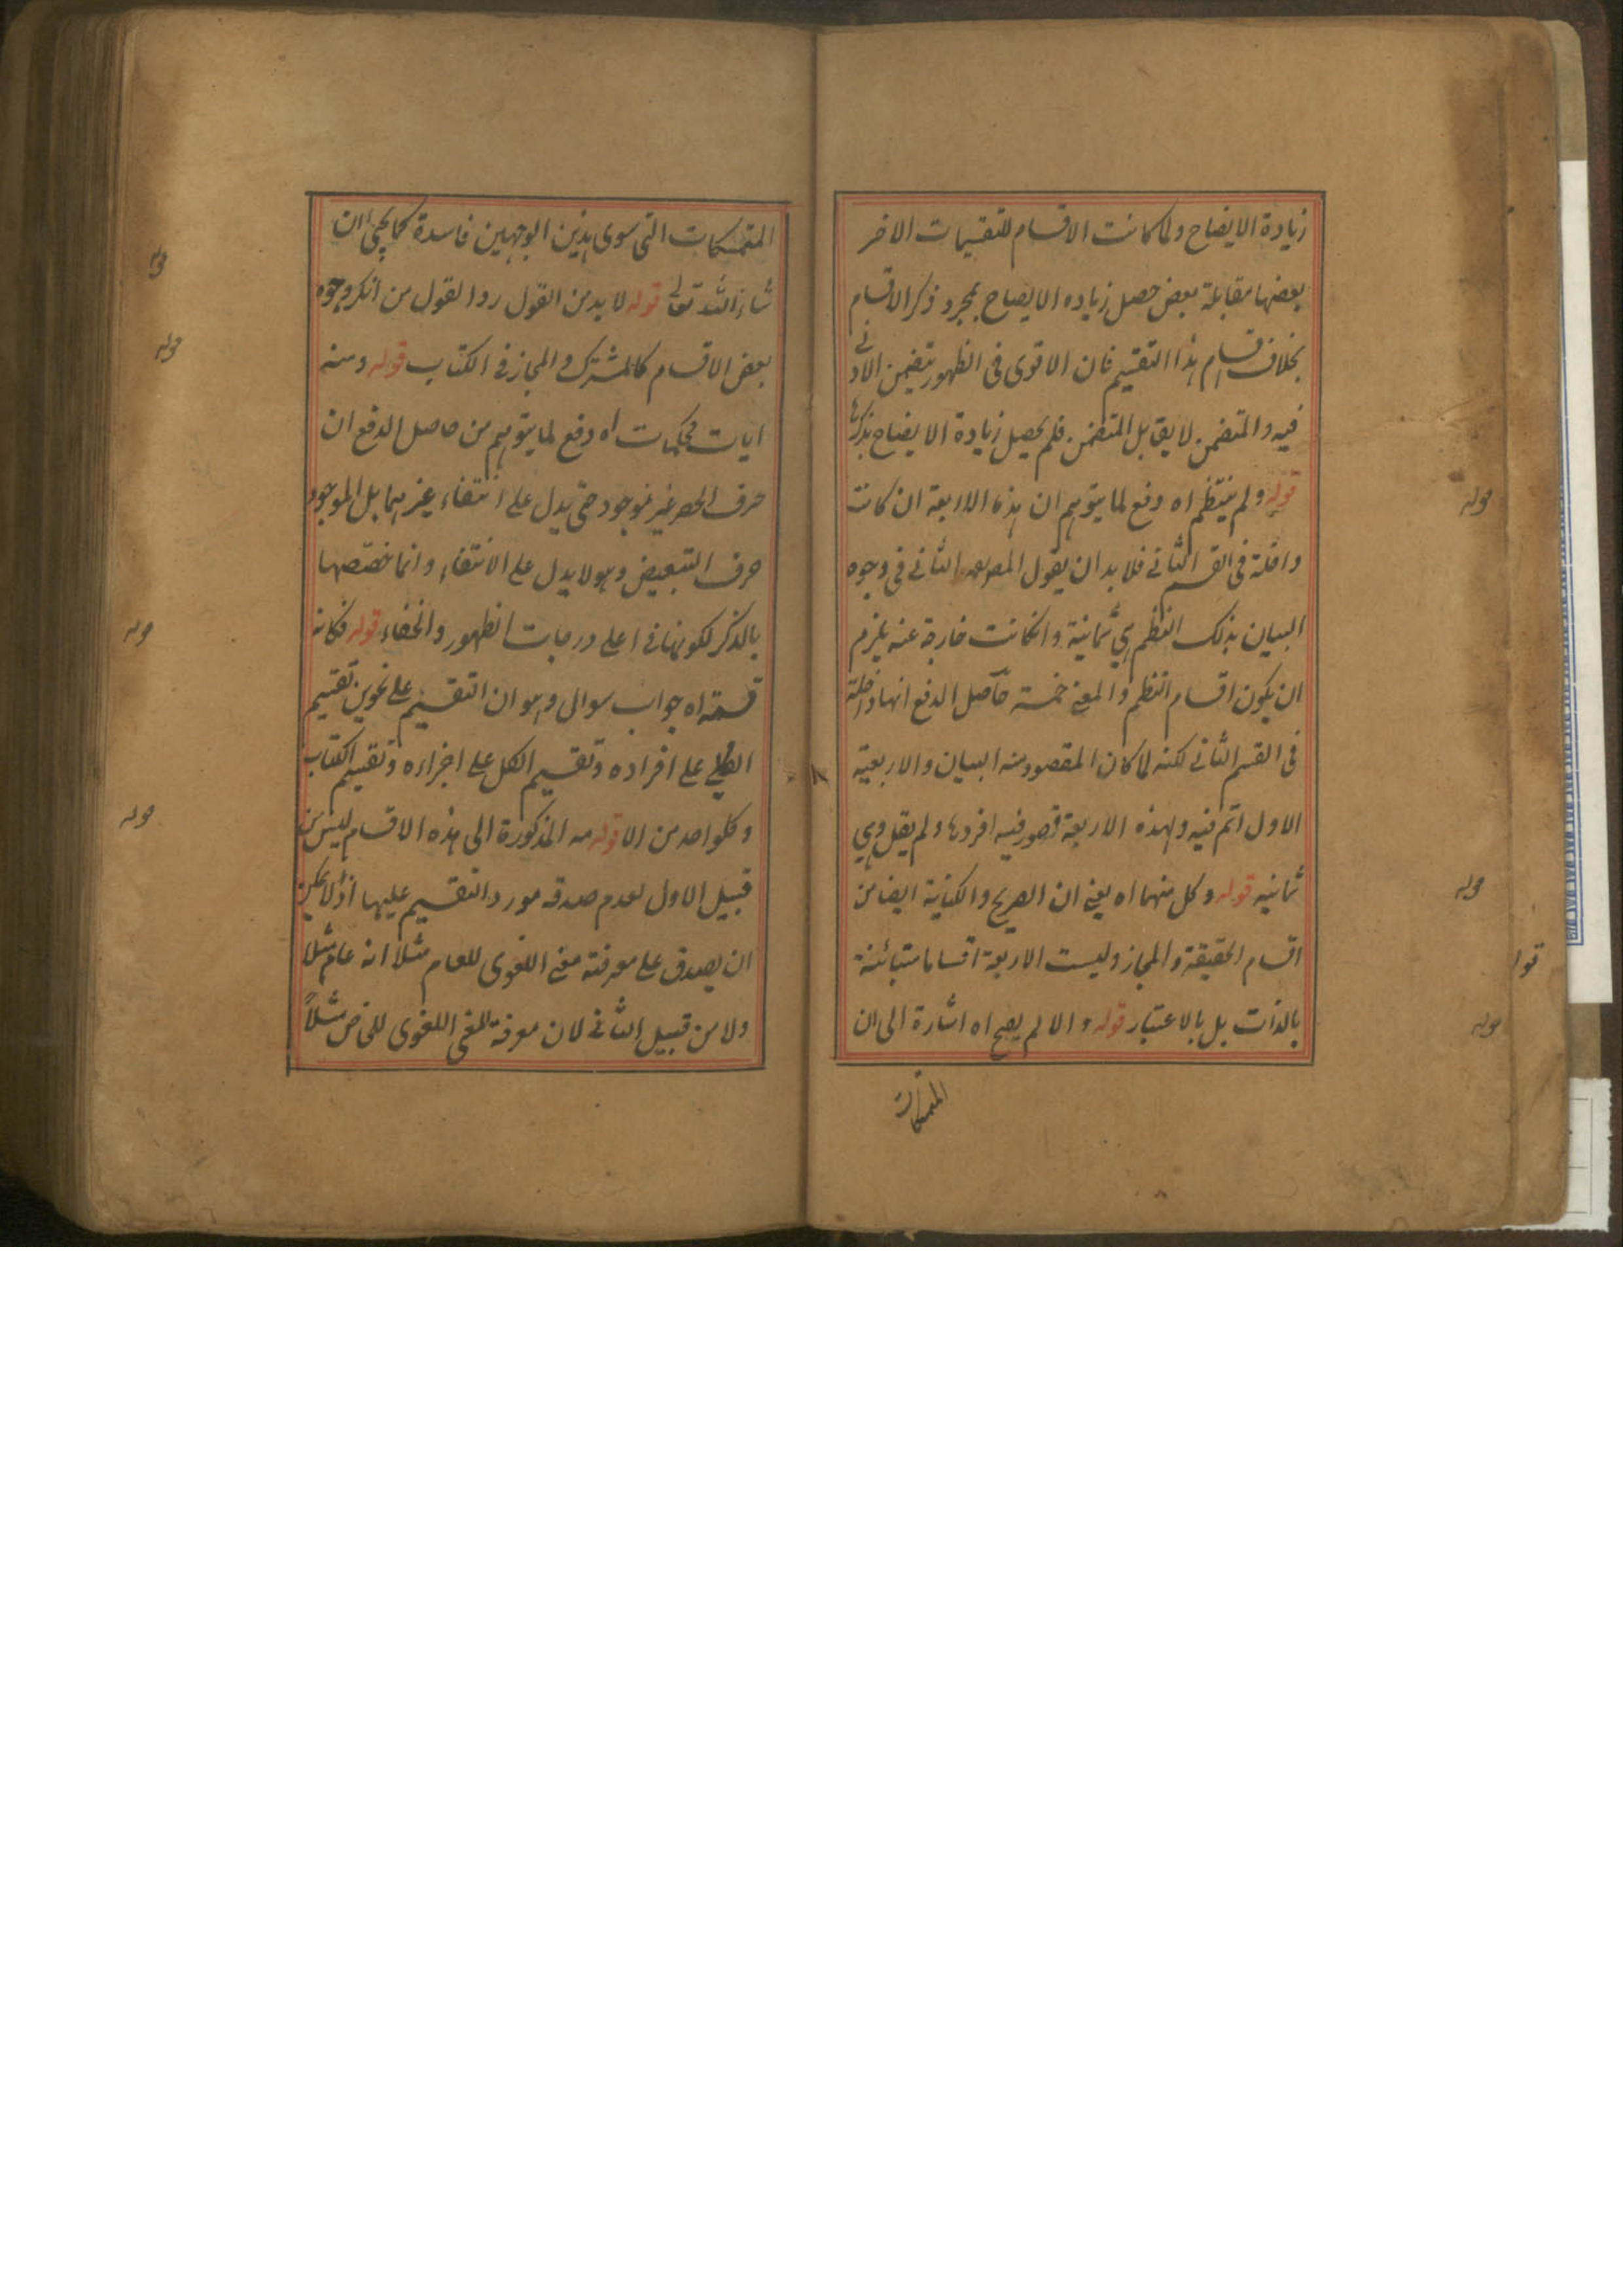 زيادة الايضاح ولما كانت الاقسام للتقسيمات الاخر
بعضها مقابلة بعض حصل زياده الايضاح بمجرد ذكر الاقسام
بخلاف اقسام هذا التقسيم فان الاقوى فى الظهور يتضمن الادنى
فيه والمتضمن لا يقابل المتضمن فلم يحصل زيادة الايضاح بذكرها
قوله ولم ينتظم اه دفع لما يتوهم ان هذه الاربعة ان كانت
داخلة فى القسم الثانى فلا بد ان يقول المص الثانى فى وجوه
البيان بذلك النظم هى ثمانية وانكانت خارجة عنه يلزم
ان يكون اقسام النظم والمعنى خمسة حاصل الدفع انها داخلة
فى القسم الثانى لكنه لما كان المقصود منه البيان والاربعة
الاول اتم فيه ولهذه الاربعة قصور فيه افردها ولم يقل وهى
ثمانيه قوله وكل منهما اه يعنى ان الصريح والكناية ايضا من
اقسام الحقيقة والمجاز وليست الاربعة اقساما متبائنة
بالذات بل بالاعتبار قوله والا لم يصح اه اشارة الى ان
المتمسكات
المتمسكات التى سوى هذين الوجهين فاسدة كما يجئ ان
شاء الله تعالى قوله لا بد من القول ردا لقول من انكر وجود
بعض الاقسام كالمشترك والمجاز فى الكتاب قوله ومنه
ايات محكمات اه دفع لما يتوهم من حاصل الدفع ان
حرف الحصر غير موجود حتى يدل على انتفاء غيرهما بل الموجود
حرف التبعيض وهو لا يدل على الانتفاء وانما خصصها
بالذكر لكونها فى اعلى درجات الظهور والخفاء قوله فكانه
قسمة اه جواب سوال وهو ان التقسيم على نحوين تقسيم
الكلى على افراده وتقسيم الكل على اجزاءه وتقسيم الكتاب
وكلواحد من الا قوله مه المذكورة الى هذه الاقسام ليس من
قبيل الاول لعدم صدقه مورد التقسيم عليها اذ لا يمكن
ان يصدق على معرفته معنى اللغوى للعام مثلا انه عام مثلا
ولا من قبيل الثانى لان معرفة للمعنى اللغوى للخاص مثلاً
قوله
قوله
قوله
قوله
قوله
قوله
قوله